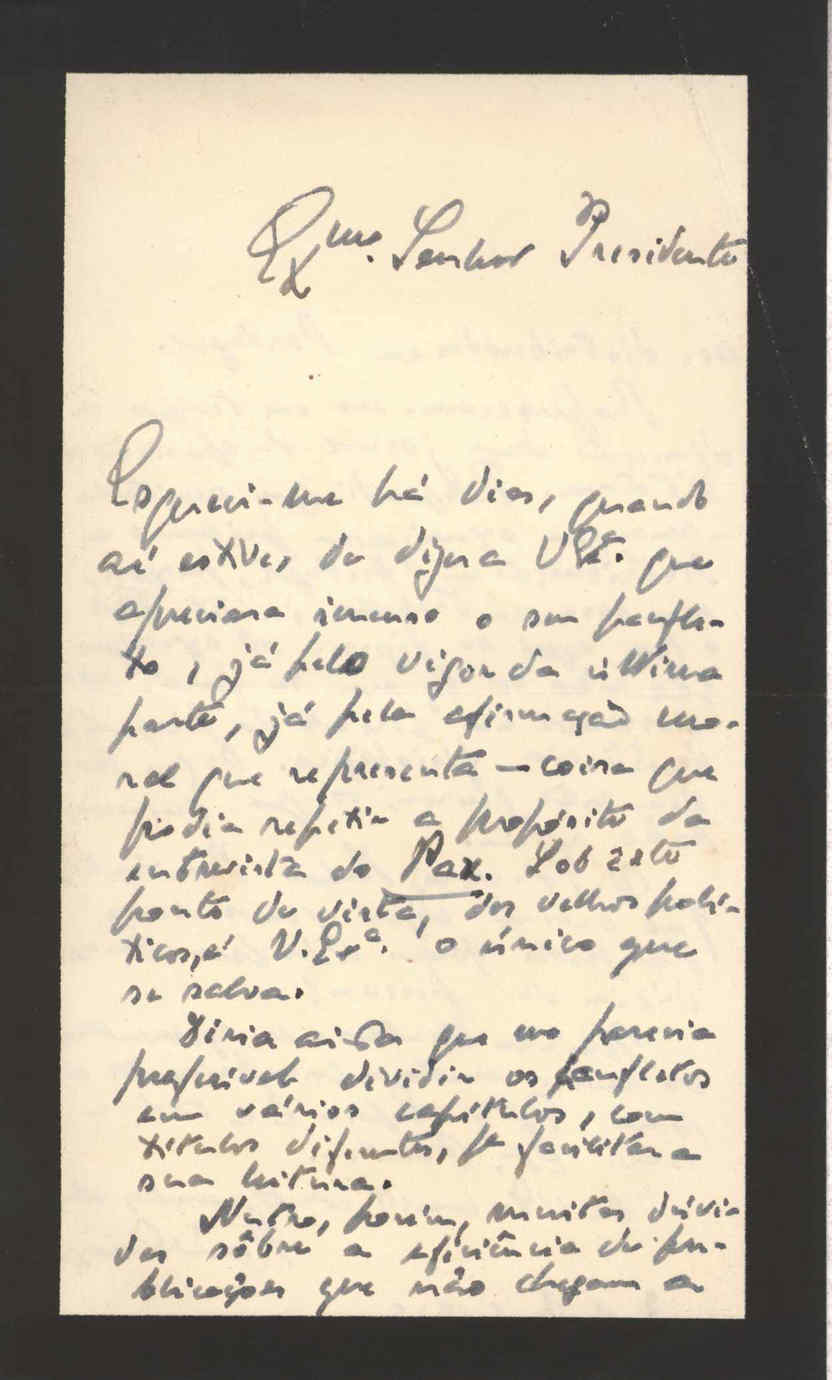 Exmo. Senhor Presidente
Esqueci-me há dias, quando
aí estive, de dizer a V. Exa. que
apreciara imenso o seu panfle-
to, já pelo vigor da última
parte, já pela afirmação mo-
ral que representa — coisa que
podia repetir a propósito da
entrevista do Pax. Sob este
ponto de vista, dos velhos polí-
ticos, é V. Exa. o único que
se salva.
Diria ainda que me parecia
preferivel dividir os panfletos
em vários capítulos, com
títulos diferentes, pa facilitar a
sua leitura.
Nutro, porém, muitas dúvi-
das sôbre a eficiência de pu-
blicações que não chegam a